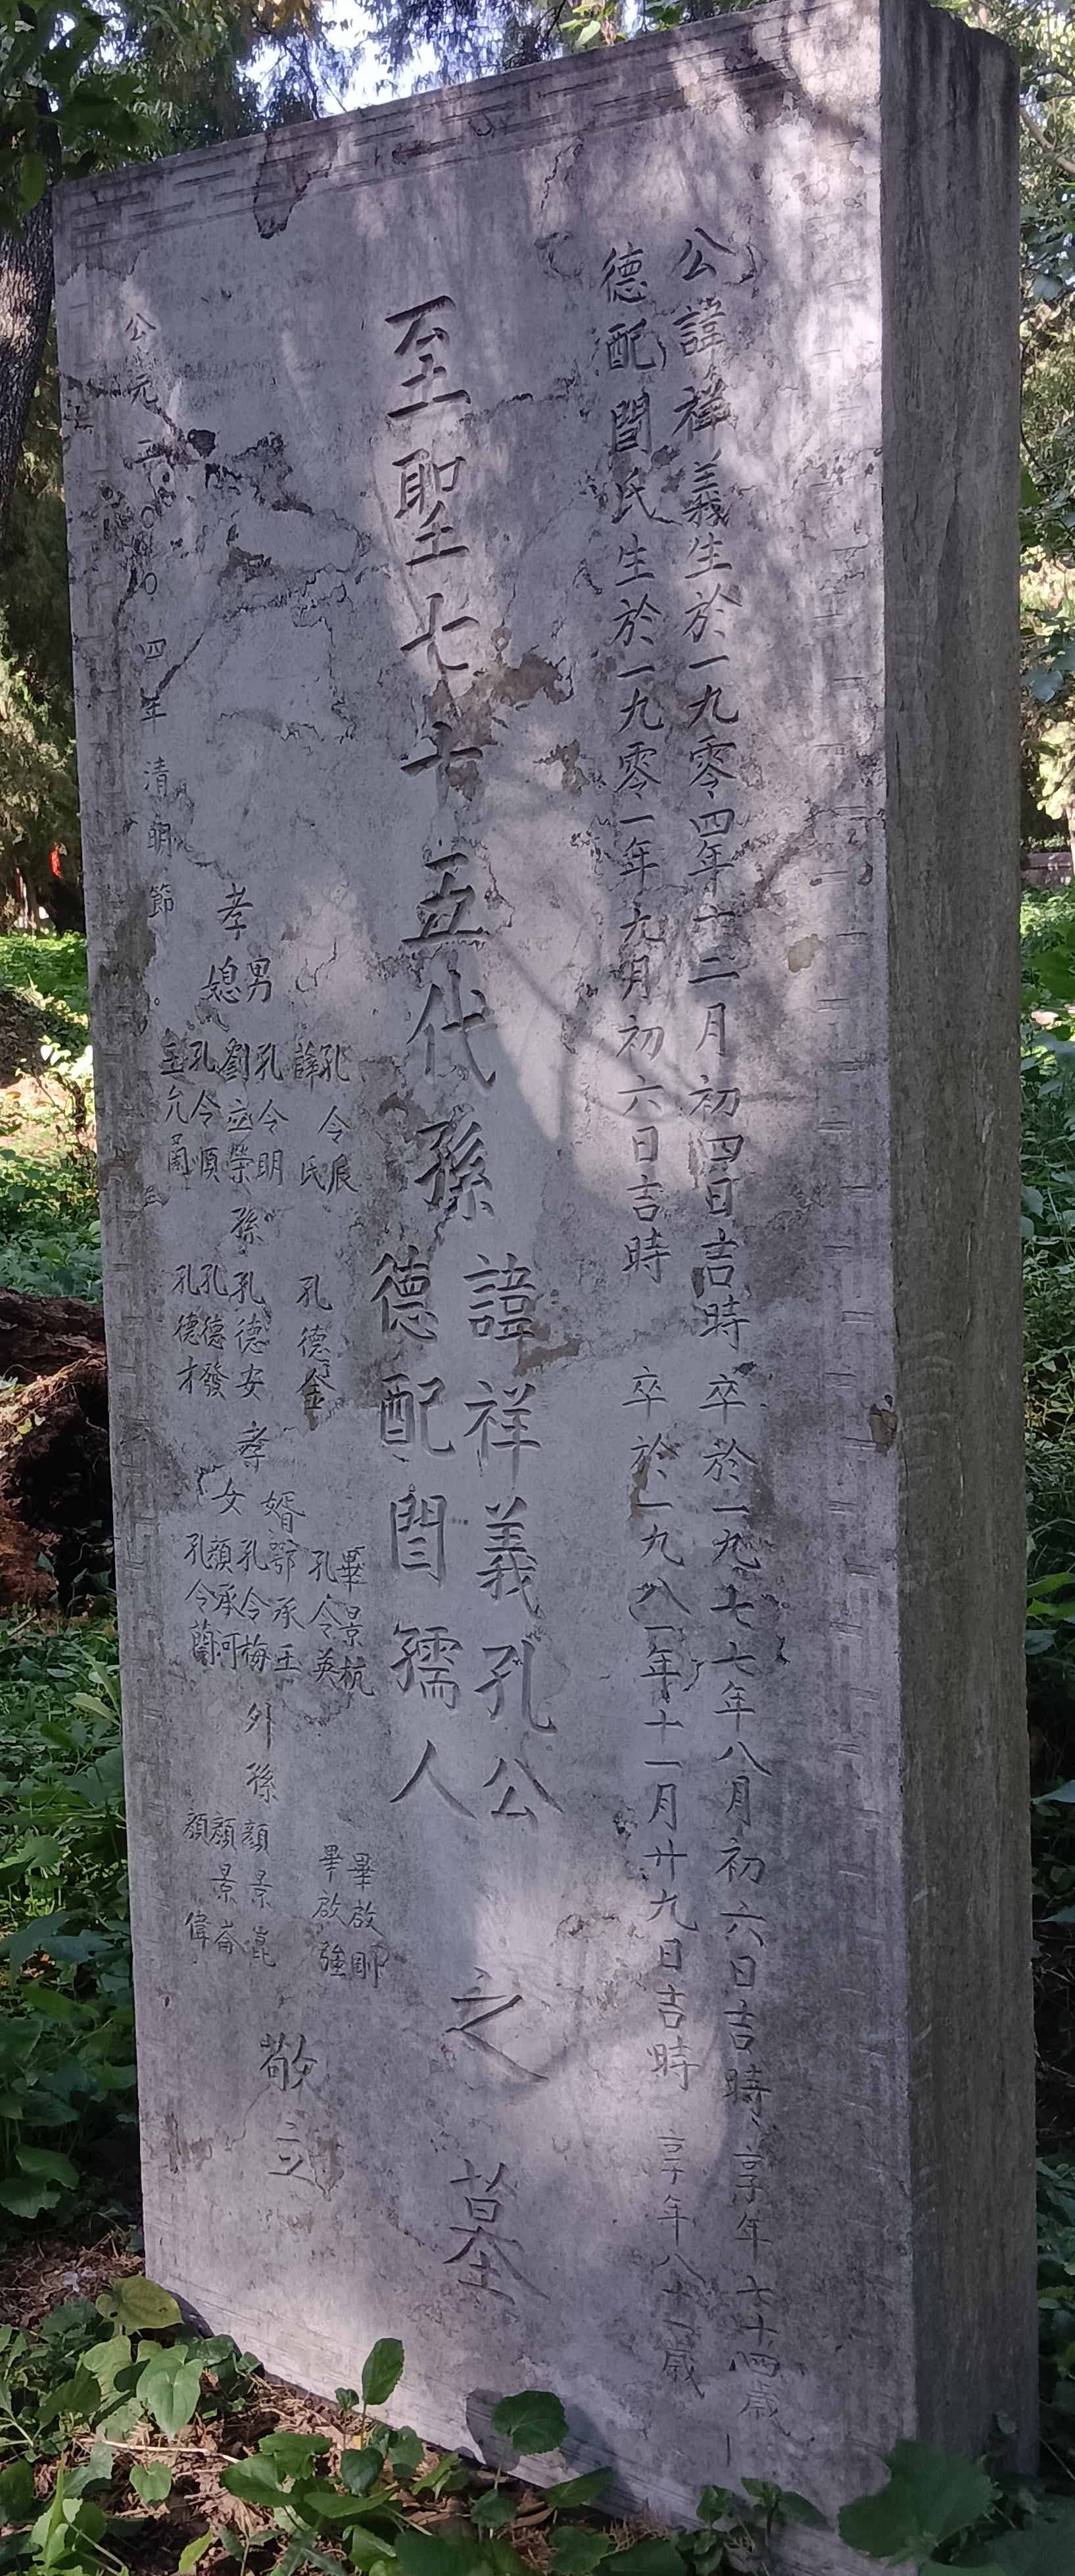 公諱祥義生於一九零四年十二月初四日吉時 卒於一九七七年八月初六日吉時 享年七十四歲
德配閆氏生於一九零一年九月初六日吉時 卒於一九八一年十一月廿九日吉時 享年八十一歲
至聖七十五代孫 諱祥義孔公 德配閆孺人 之墓
孝男 孔令辰 孔令明 孔令順
媳 薛氏 劉立榮
孫 孔德金 孔德安 孔德發 孔德才
孝女 孔令英 孔令梅 孔令蘭
婿 畢景杭 鄂承玉 顏承河
外孫 畢啟剛 畢啟強 顏景崑 顏景崙 顏偉
敬立
公元二〇〇四年清明節